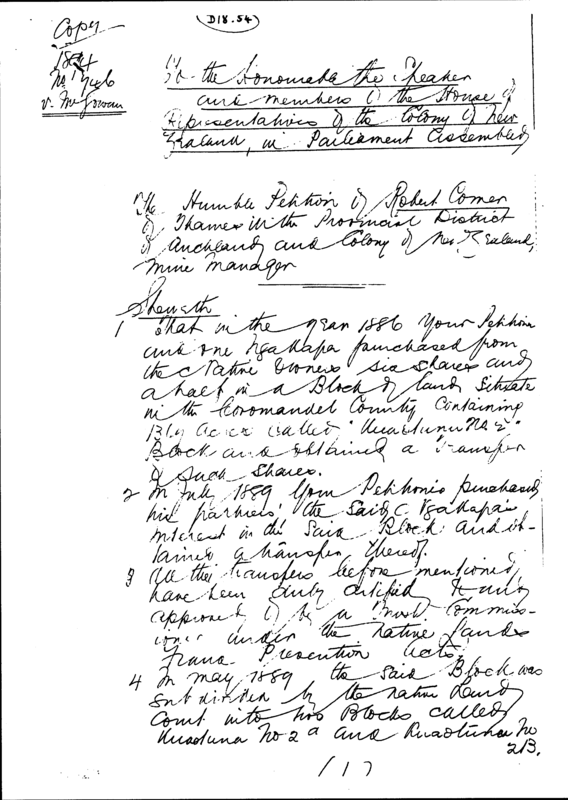 D18.54
Copy
1894
No 746
v. McGowan
To the Honourable the Speaker
and members of the House of
Representatives of the Colony of New
Zealand, in Parliament Assembled
The Humble Petition of Robert Comer
of Thames in the Provincial District
of Auckland and Colony of New Zealand,
Mine Manager
Sheweth
1 That in the year 1886 Your Petitioner
and one Ngakapa purchased from
the Native Owners six shares and
a half in a Block of land Situate
in the Coromandel County Containing
acres called "Kuaotunu No 2"
Block and obtained a Transfer
of such Shares.
2 In July 1889 Your Petitioner purchased
his partners' the said Ngakapa's
interest in the said Block and ob-
tained a transfer thereof.
3 All the transfers before mentioned
have been duly certified and
approved of by a Trust Commiss-
ioner under the Native Lands
Frauds Prevention Acts.
4 In May 1889 the said Block was
subdivided by the Native Land
Court into two Blocks called
Kuaotunu No 2A and Kuaotunu No
2B.